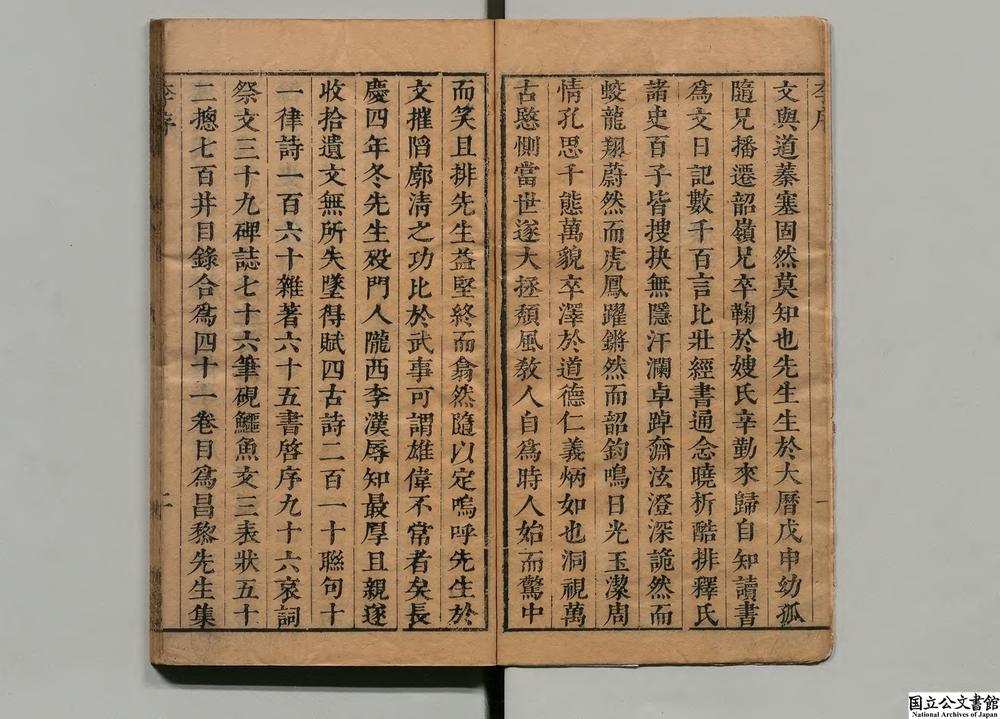 文與道蓁塞固然莫知也先生生於大曆戊申幼孤
隨兄播遷韶嶺兄卒鞠於嫂氏辛勤來歸自知讀書
爲文日記數千百言比壯經書通念曉析酷排釋氏
諸史百子皆搜抉無隱汗瀾卓踔奫泫澄深詭然而
蛟龍翔蔚然而虎鳳躍鏘然而韶鈞鳴日光玉潔周
情孔思千態萬貌卒澤於道德仁義炳如也洞視萬
古愍惻當世遂大拯頹風敎人自爲時人始而驚中
而笑且排先生益堅終而翕然隨以定嗚呼先生於
文摧䧟廓淸之功比於武事可謂雄偉不常者矣長
慶四年冬先生歿門人隴西李漢辱知最厚且親遂
收拾遺文無所失墜得賦四古詩二百一十聯句十
一律詩一百六十雜著六十五書啓序九十六哀詞
祭文三十九碑誌七十六筆硯鱷魚文三表狀五十
二摠七百幷目錄合爲四十一卷目爲昌黎先生集
李序 二
国立公文書館
National Archives of Japan